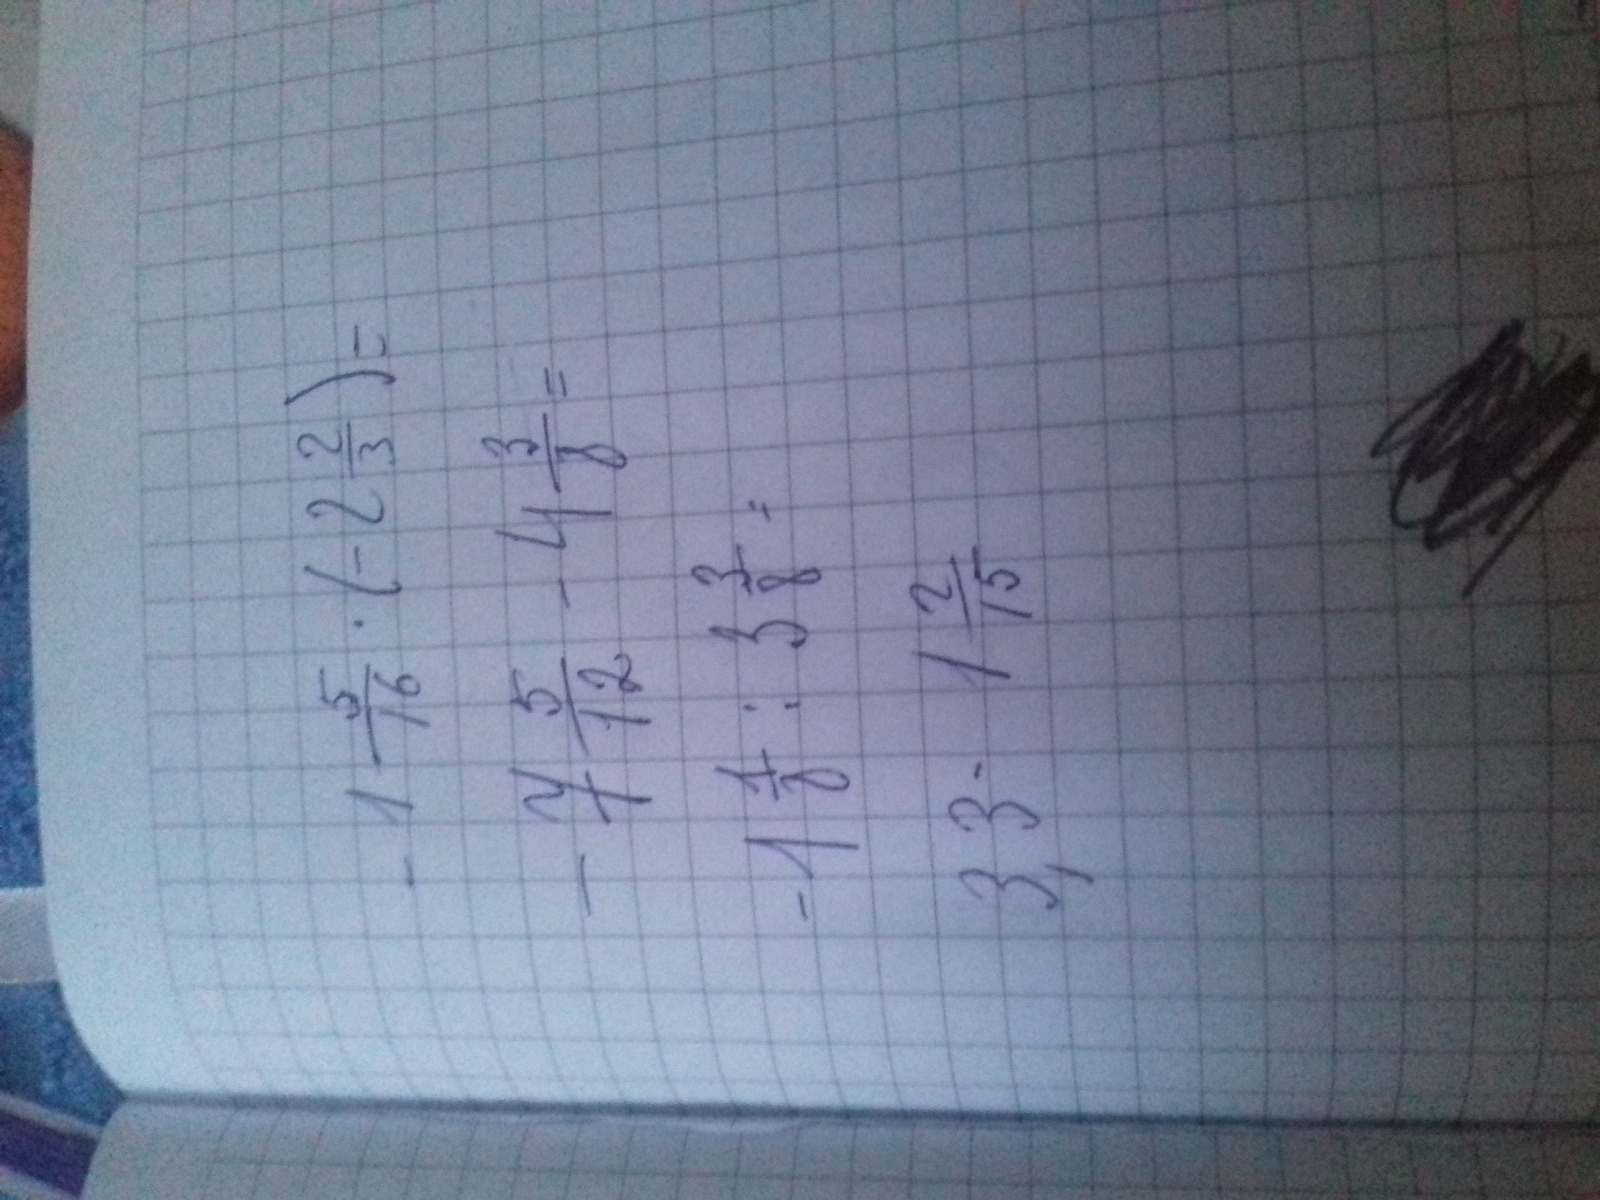 - 1 5/16 · (- 2 2/3) =
- 7 5/12 - 4 3/8 =
- 1 1/8 : 3 3/8 =
3,3 - 1 2/15